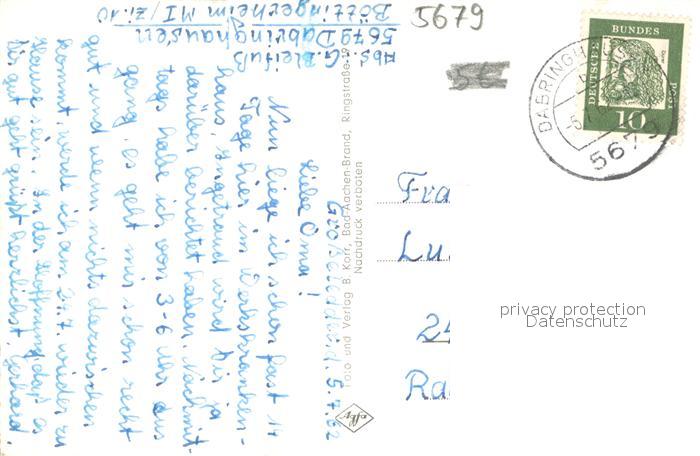 Abs. G. Bleifuß
5679 Dabringhausen
Böttingerheim MI/Zi.10
5679
DEUTSCHE BUNDES POST
10
DABRINGHAUS
5679
5.7.62
Liebe Oma!
Nun liege ich schon fast 14
Tage hier im Werkskranken-
haus, Ingetraud wird Dir ja
darüber berichtet haben. Nachmit-
tags habe ich von 3-6 Uhr aus
gang, es geht mir schon recht
gut und wenn nichts dazwischen
kommt, werde ich am 20.7. wieder zu
Hause sein. In der Hoffnung, daß es
Dir gut geht grüßt herzlichst Gerhard.
Foto und Verlag B. Korr, Bad-Aachen-Brand, Ringstraße 19
Nachdruck verboten
Fra
Lu
24
Ra
privacy protection
Datenschutz